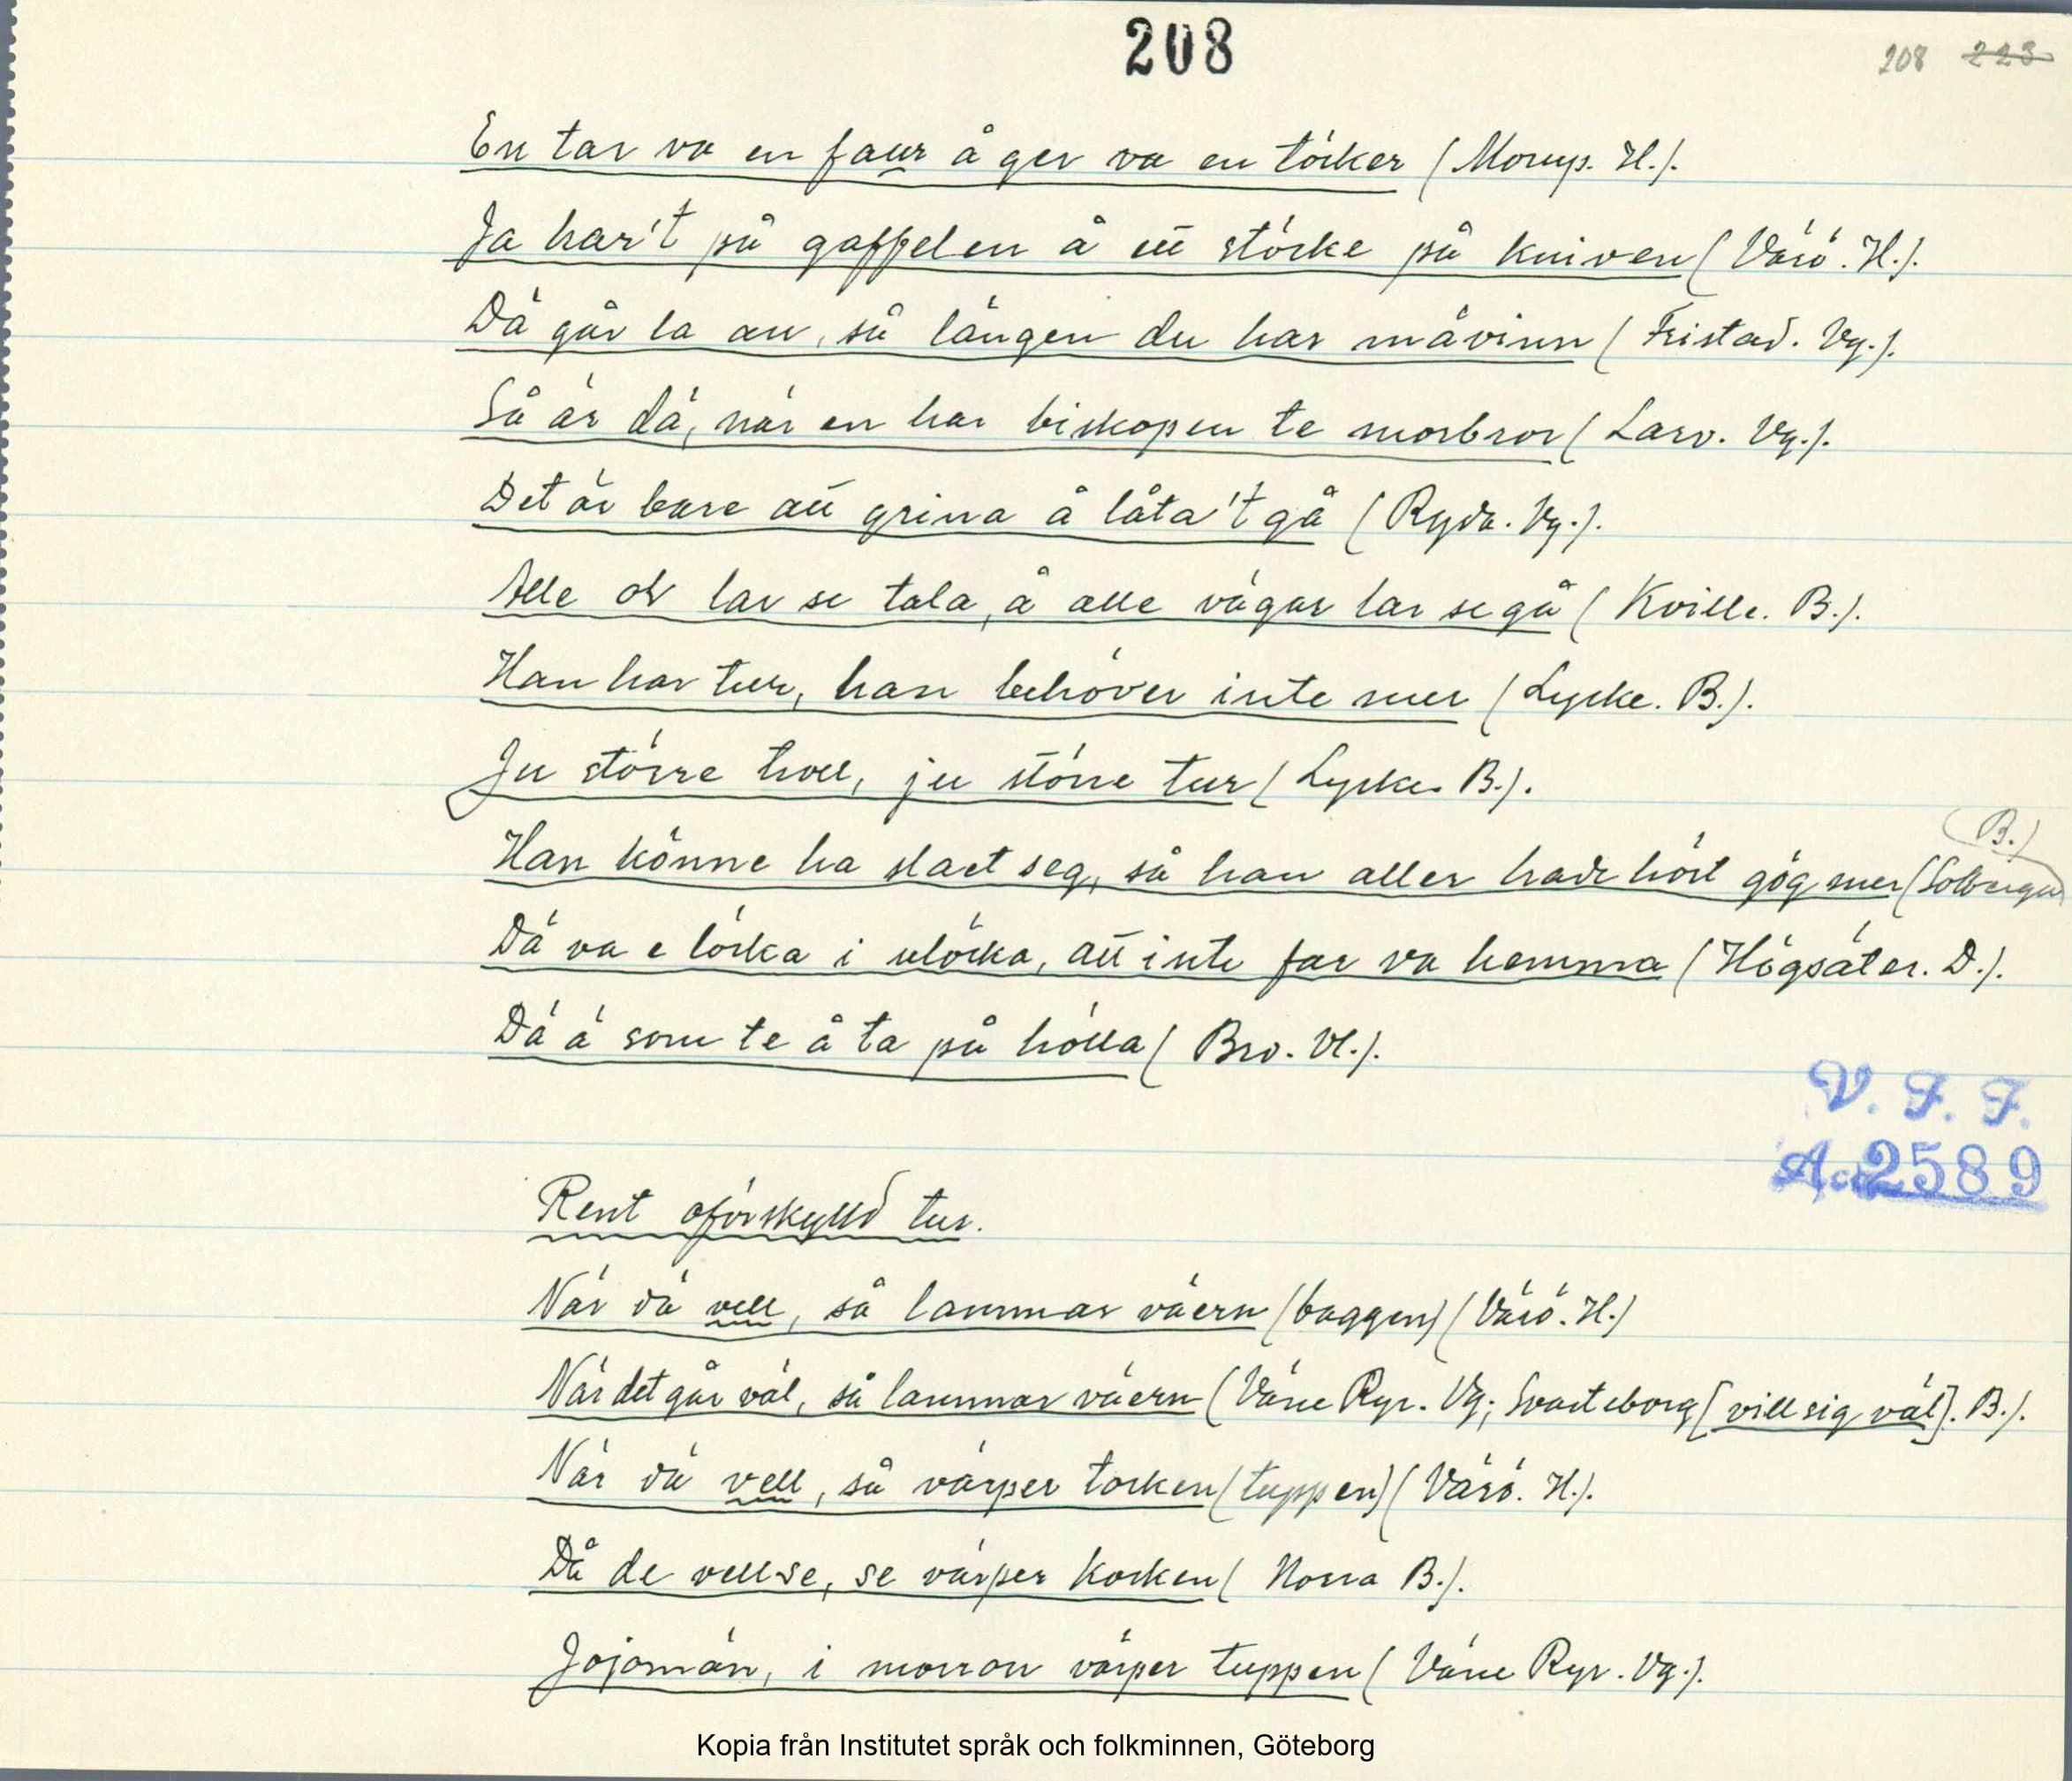 208
208 223
En tar va en faur å ger va en törker (Morup. H.).
Ja har't på gaffelen å ett störke på kniven (Värö. H.).
Dä går la an, så längen du har måvinn (Fristad. Vg.).
Så är dä, när en har biskopen te morbror (Larv. Vg.).
Det är bare att grina å låta 't gå (Ryda. Vg.).
Alle ol lar se tala, å alle vägar lar se gå (Kville. B.).
Han har tur, han behöver inte mer (Lycke. B.).
Ju större troll, ju större tur (Lycke. B.).
Han könne ha slaet seg, så han aller hade hört gög mer (Solberga
B.)
Dä va e löcka i ulöcka, att inte far va hemma (Högsäter. D.).
Dä ä som te å ta på hölla (Bro. Vl.).
V. F. F.
Acc 2589
Rent oförskylld tur.
När dä vell, så lammar väern (baggen) (Värö. H.)
När det går väl, så lammar väern (Väne Ryr. Vg; Svarteborg [vill sig väl]. B.).
När dä vell, så värper torken (tuppen) (Värö. H.).
Då de vell se, se värper korken (Norra B.).
Jojomän, i morron värper tuppen (Väne Ryr. Vg.).
Kopia från Institutet språk och folkminnen, Göteborg